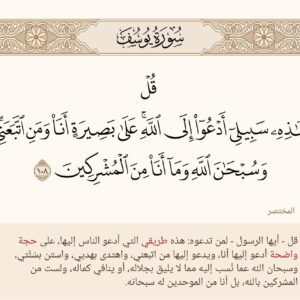 سُورَةُ يُوسُفَ
قُلْ
هَٰذِهِۦ سَبِيلِيٓ أَدْعُوٓاْ إِلَى ٱللَّهِۚ عَلَىٰ بَصِيرَةٍ أَنَا۠ وَمَنِ ٱتَّبَعَنِيۖ
وَسُبْحَٰنَ ٱللَّهِ وَمَآ أَنَا۠ مِنَ ٱلْمُشْرِكِينَ ١٠٨
المختصر
قل - أيها الرسول - لمن تدعوه: هذه طريقي التي أدعو الناس إليها، على حجة
واضحة أدعو إليها أنا، ويدعو إليها من اتبعني، واهتدى بهديي، واستن بسُنَّتي،
وسبحان الله عما نُسب إليه مما لا يليق بجلاله، أو ينافي كماله، ولست من
المشركين بالله، بل أنا من الموحدين له سبحانه.